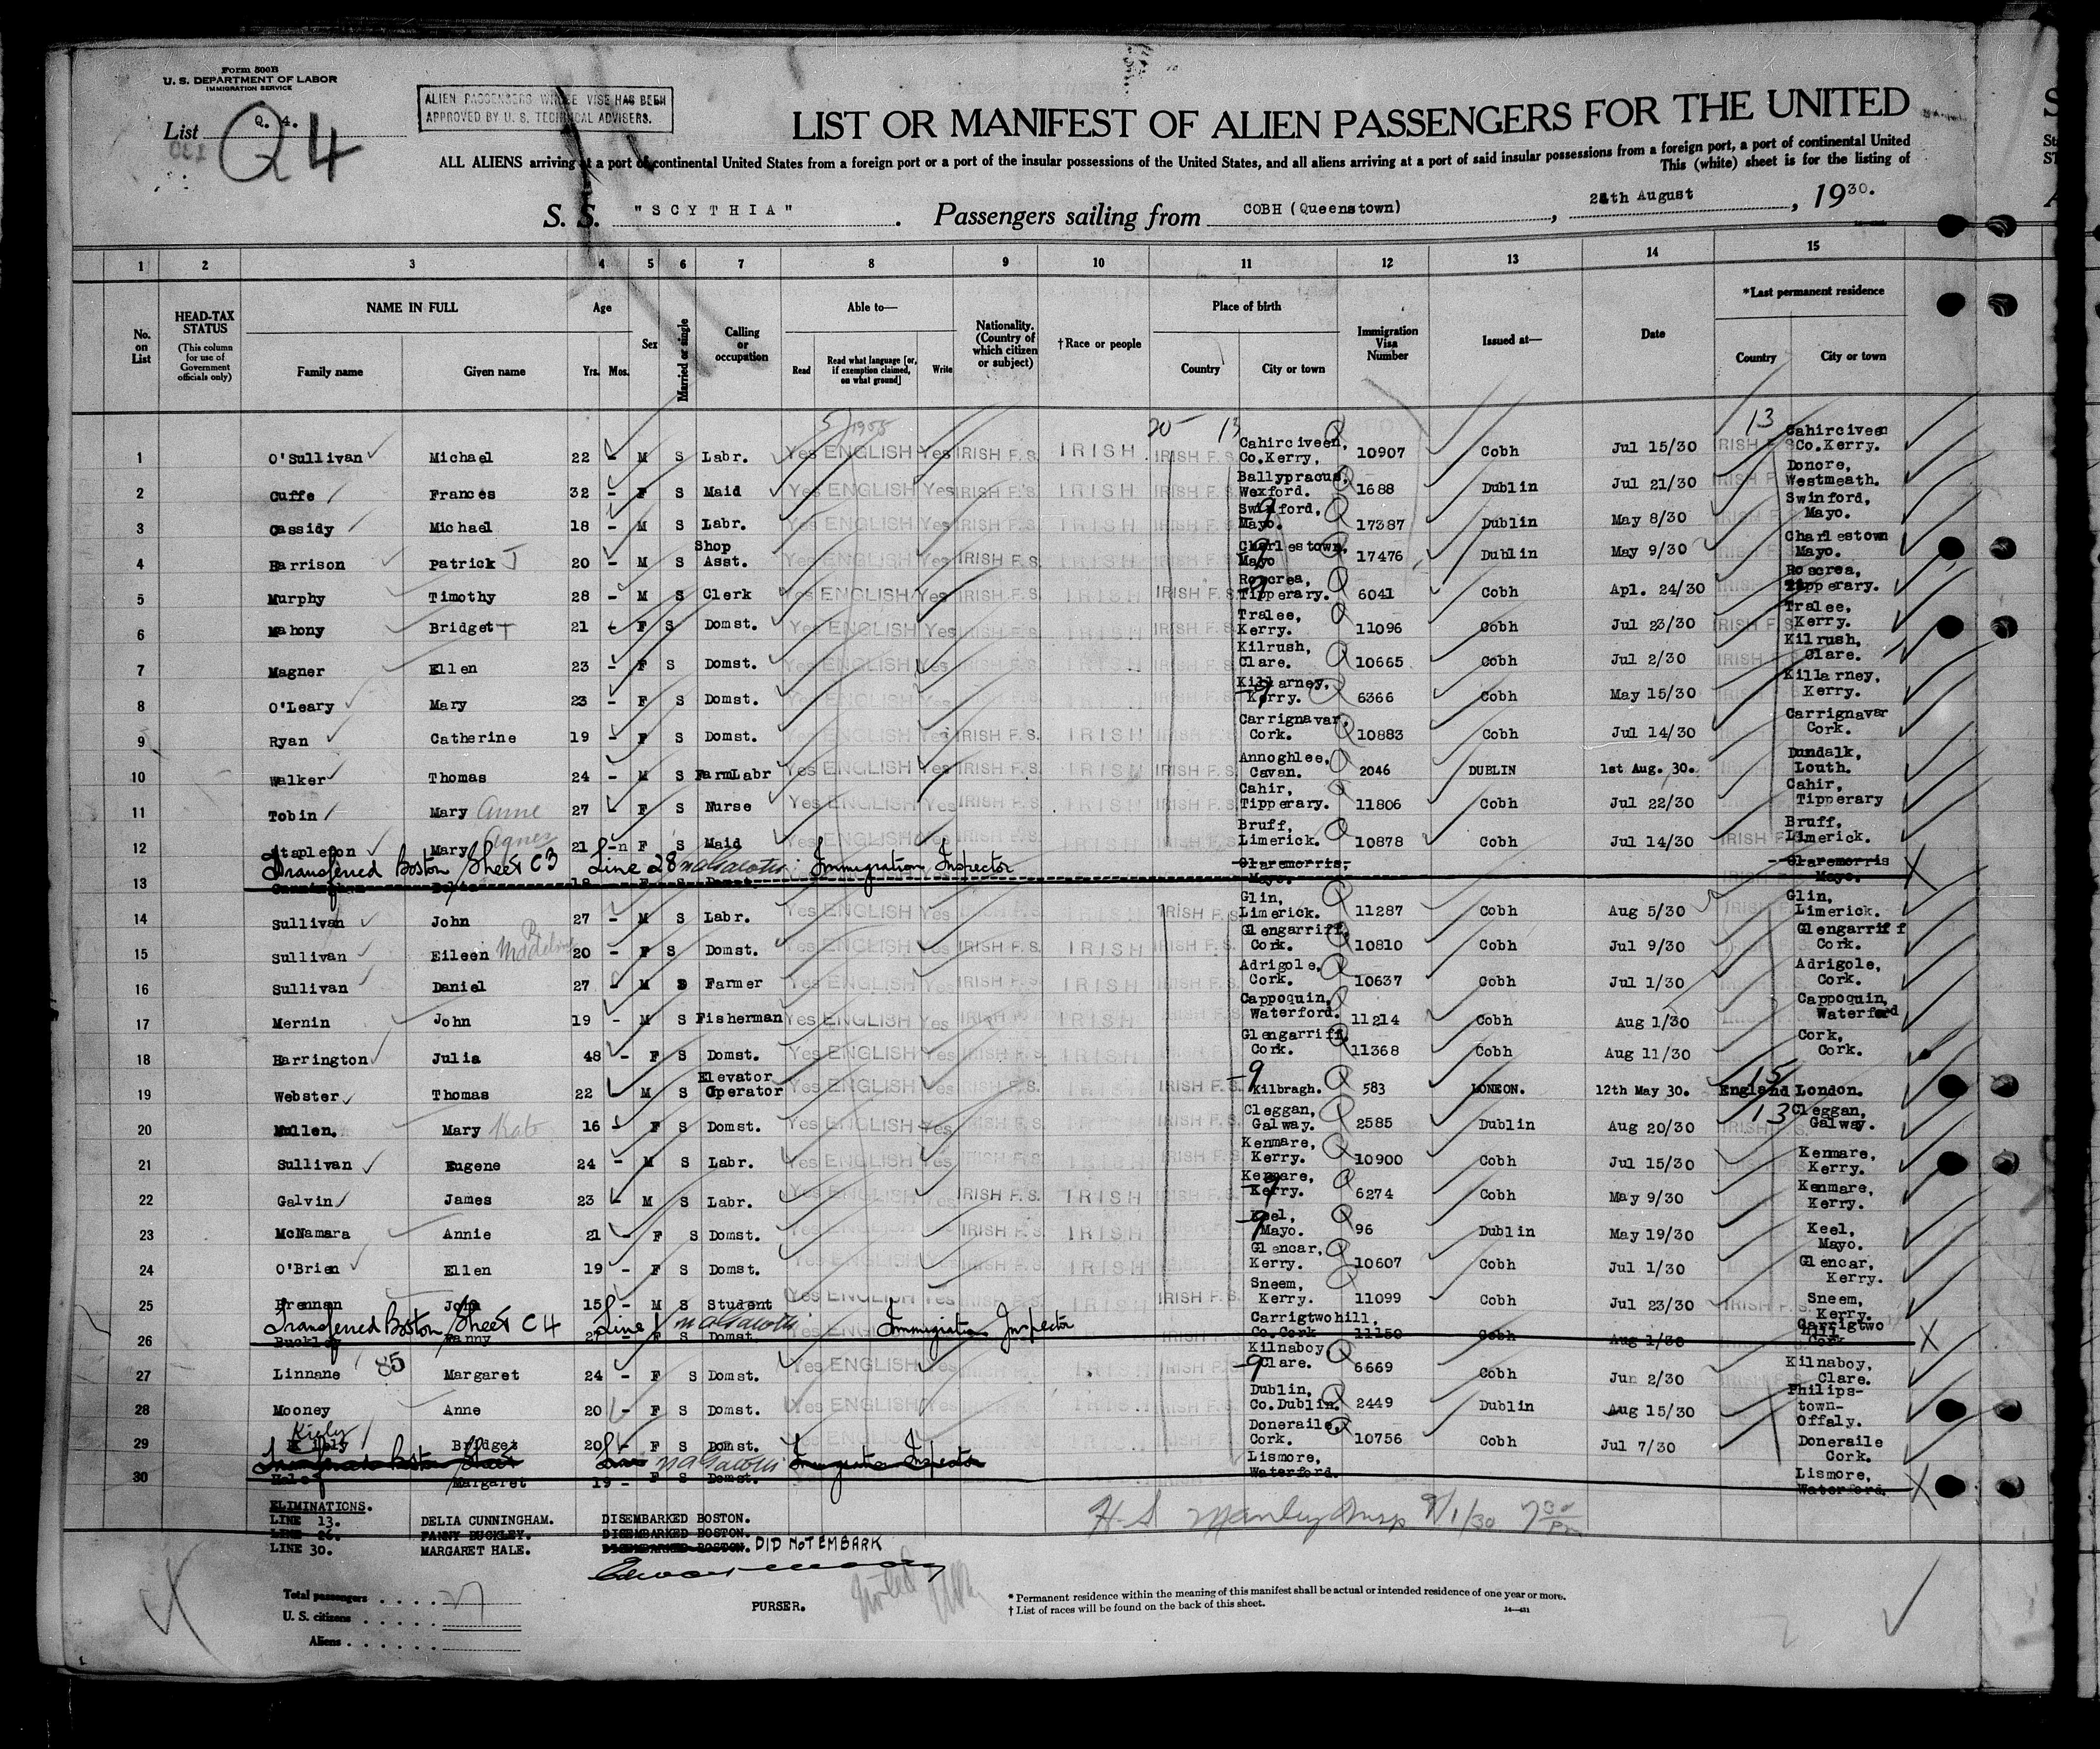 Form 500B
U. S. DEPARTMENT OF LABOR
IMMIGRATION SERVICE
List Q. 4.
Q4
ALIEN PASSENGERS WHOSE VISE HAS BEEN
APPROVED BY U. S. TECHNICAL ADVISERS.
LIST OR MANIFEST OF ALIEN PASSENGERS FOR THE UNITED
ALL ALIENS arriving at a port of continental United States from a foreign port or a port of the insular possessions of the United States, and all aliens arriving at a port of said insular possessions from a foreign port, a port of continental United
This (white) sheet is for the listing of
S. S. "SCYTHIA". Passengers sailing from COBH (Queenstown), 24th August, 1930.
1 2 3 4 5 6 7 8 9 10 11 12 13 14 15
No. on List
HEAD-TAX STATUS (This column for use of Government officials only)
NAME IN FULL Family name Given name
Age Yrs. Mos.
Sex
Married or single
Calling or occupation
Able to— Read Read what language [or, if exemption claimed, on what ground] Write
Nationality. (Country of which citizen or subject)
† Race or people
Place of birth Country City or town
Immigration Visa Number
Issued at—
Date
*Last permanent residence Country City or town
20 13 13
1 O'Sullivan Michael 22 - M S Labr. Yes ENGLISH Yes IRISH F.S. IRISH IRISH F.S. Cahirciveen, Co.Kerry, 10907 Cobh Jul 15/30 IRISH F.S. Cahirciveen Co.Kerry.
2 Cuffe Frances 32 - F S Maid Yes ENGLISH Yes IRISH F.S. IRISH IRISH F.S. Ballypracus, Wexford. 1688 Dublin Jul 21/30 IRISH F.S. Donore, Westmeath.
3 Cassidy Michael 18 - M S Labr. Yes ENGLISH Yes IRISH F.S. IRISH IRISH F.S. Swinford, Mayo. 17387 Dublin May 8/30 IRISH F.S. Swinford, Mayo.
4 Harrison Patrick J 20 - M S Shop Asst. Yes ENGLISH Yes IRISH F.S. IRISH IRISH F.S. Charlestown, Mayo 17476 Dublin May 9/30 Charlestown Mayo.
5 Murphy Timothy 28 - M S Clerk Yes ENGLISH Yes IRISH F.S. IRISH IRISH F.S. Roscrea, Tipperary. 6041 Cobh Apl. 24/30 Roscrea, Tipperary.
6 Mahony Bridget 21 - F S Domst. Yes ENGLISH Yes IRISH F.S. IRISH IRISH F.S. Tralee, Kerry. 11096 Cobh Jul 23/30 IRISH F.S. Tralee, Kerry.
7 Magner Ellen 23 - F S Domst. Yes ENGLISH Yes IRISH F.S. IRISH IRISH F.S. Kilrush, Clare. 10665 Cobh Jul 2/30 IRISH F.S. Kilrush, Clare.
8 O'Leary Mary 23 - F S Domst. Yes ENGLISH Yes IRISH F.S. IRISH Killarney, Kerry. 6366 Cobh May 15/30 Killarney, Kerry.
9 Ryan Catherine 19 - F S Domst. Yes ENGLISH Yes IRISH F.S. IRISH IRISH F.S. Carrignavar, Cork. 10883 Cobh Jul 14/30 Carrignavar Cork.
10 Walker Thomas 24 - M S FarmLabr Yes ENGLISH Yes IRISH F.S. IRISH IRISH F.S. Annoghlee, Cavan. 2046 DUBLIN 1st Aug. 30. Dundalk, Louth.
11 Tobin Mary Anne 27 - F S Nurse Yes ENGLISH Yes IRISH F.S. IRISH IRISH F.S. Cahir, Tipperary. 11806 Cobh Jul 22/30 Cahir, Tipperary
12 Stapleton Mary Agnes 21 - F S Maid Yes ENGLISH Yes IRISH F.S. IRISH Bruff, Limerick. 10878 Cobh Jul 14/30 IRISH F.S. Bruff, Limerick.
Transferred Boston Sheet C3 Line 28 Immigration Inspector
13 Cunningham Delia 18 F S Domst Claremorris, Mayo. Claremorris Mayo. X
14 Sullivan John 27 - M S Labr. Yes ENGLISH Yes IRISH IRISH F.S. Glin, Limerick. 11287 Cobh Aug 5/30 Glin, Limerick.
15 Sullivan Eileen 20 - F S Domst. Yes ENGLISH Yes IRISH F.S. IRISH IRISH F.S. Glengarriff, Cork. 10810 Cobh Jul 9/30 Glengarriff Cork.
16 Sullivan Daniel 27 - M S Farmer Yes ENGLISH Yes IRISH F.S. IRISH IRISH F.S. Adrigole, Cork. 10637 Cobh Jul 1/30 Adrigole, Cork.
17 Mernin John 19 - M S Fisherman Yes ENGLISH Yes IRISH Cappoquin, Waterford. 11214 Cobh Aug 1/30 Cappoquin, Waterford
18 Harrington Julia 48 - F S Domst. Yes ENGLISH Yes IRISH F.S. IRISH Glengarriff, Cork. 11368 Cobh Aug 11/30 Cork, Cork.
19 Webster Thomas 22 - M S Elevator Operator Yes ENGLISH Yes IRISH F.S. IRISH F.S. 9 Kilbragh. 583 LONDON. 12th May 30. 15 England London.
20 Mullen. Mary Kate 16 - F S Domst. Yes ENGLISH Yes IRISH F.S. Cleggan, Galway. 2585 Dublin Aug 20/30 13 Cleggan, Galway.
21 Sullivan Eugene 24 - M S Labr. Yes ENGLISH Yes IRISH F.S. Kenmare, Kerry. 10900 Cobh Jul 15/30 Kenmare, Kerry.
22 Galvin James 23 - M S Labr. Yes ENGLISH Yes IRISH F.S. IRISH Kenmare, Kerry. 6274 Cobh May 9/30 Kenmare, Kerry.
23 McNamara Annie 21 - F S Domst. Yes ENGLISH Yes IRISH F.S. IRISH Keel, Mayo. 96 Dublin May 19/30 Keel, Mayo.
24 O'Brien Ellen 19 - F S Domst. Yes ENGLISH Yes IRISH F.S. IRISH Glencar, Kerry. 10607 Cobh Jul 1/30 Glencar, Kerry.
25 Brennan John 15 - M S Student Yes ENGLISH Yes IRISH F.S. IRISH IRISH F.S. Sneem, Kerry. 11099 Cobh Jul 23/30 IRISH F.S. Sneem, Kerry.
Transferred Boston Sheet C4 Line 1 Immigration Inspector
26 Buckley Fanny F S Domst. Carrigtwohill, Co.Cork 11150 Cobh Aug 1/30 Carrigtwo hill Cork X
27 Linnane 85 Margaret 24 - F S Domst. Yes ENGLISH Yes IRISH F.S. IRISH IRISH F.S. 9 Kilnaboy, Clare. 6669 Cobh Jun 2/30 Kilnaboy, Clare.
28 Mooney Anne 20 - F S Domst. Yes ENGLISH Yes IRISH F.S. IRISH Dublin, Co.Dublin. 2449 Dublin Aug 15/30 Philips-town- Offaly.
Kiely
29 Bridget 20 - F S Domst. Yes ENGLISH Yes IRISH Doneraile, Cork. 10756 Cobh Jul 7/30 Doneraile Cork.
Transferred Boston Sheet Line Immigration Inspector
30 Hale Margaret 19 - F S Domst. Lismore, Waterford. Lismore, Waterford. X
ELIMINATIONS.
LINE 13. DELIA CUNNINGHAM. DISEMBARKED BOSTON.
LINE 26. FANNY BUCKLEY. DISEMBARKED BOSTON.
LINE 30. MARGARET HALE. DISEMBARKED BOSTON. DID NOT EMBARK
H.S. Manley Insp 9/1/30 7 30 Pm
Total passengers 27
U. S. citizens
Aliens
PURSER.
* Permanent residence within the meaning of this manifest shall be actual or intended residence of one year or more.
† List of races will be found on the back of this sheet.